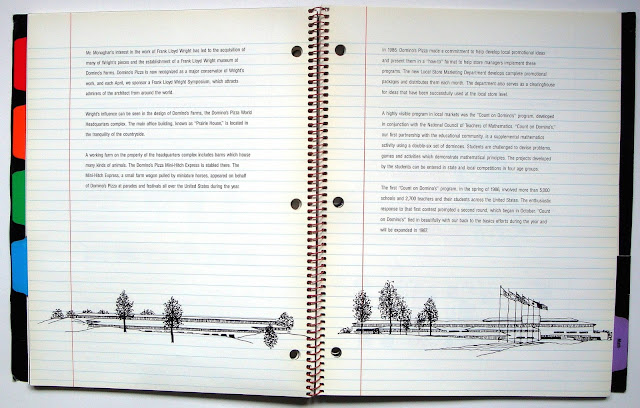 Mr. Monaghan's interest in the work of Frank Lloyd Wright has led to the acquisition of
many of Wright's pieces and the establishment of a Frank Lloyd Wright museum at
Domino's Farms. Domino's Pizza is now recognized as a major conservator of Wright's
work, and each April, we sponsor a Frank Lloyd Wright Symposium, which attracts
admirers of the architect from around the world.
Wright's influence can be seen in the design of Domino's Farms, the Domino's Pizza World
Headquarters complex. The main office building, known as "Prairie House," is located in
the tranquility of the countryside.
A working farm on the property of the headquarters complex includes barns which house
many kinds of animals. The Domino's Pizza Mini-Hitch Express is stabled there. The
Mini-Hitch Express, a small farm wagon pulled by miniature horses, appeared on behalf
of Domino's Pizza at parades and festivals all over the United States during the year.
In 1986, Domino's Pizza made a commitment to help develop local promotional ideas
and present them in a "how-to" format to help store managers implement these
programs. The new Local Store Marketing Department develops complete promotional
packages and distributes them each month. The department also serves as a clearinghouse
for ideas that have been successfully used at the local store level.
A highly visible program in local markets was the "Count on Domino's" program, developed
in conjunction with the National Council of Teachers of Mathematics. "Count on Domino's,"
our first partnership with the educational community, is a supplemental mathematics
activity using a double-six set of dominoes. Students are challenged to devise problems,
games and activities which demonstrate mathematical principles. The projects developed
by the students can be entered in state and local competitions in four age groups.
The first "Count on Domino's" program, in the spring of 1986, involved more than 5,000
schools and 2,700 teachers and their students across the United States. The enthusiastic
response to that first contest prompted a second round, which began in October. "Count
on Domino's" tied in beautifully with our back to the basics efforts during the year and
will be expanded in 1987.
Math